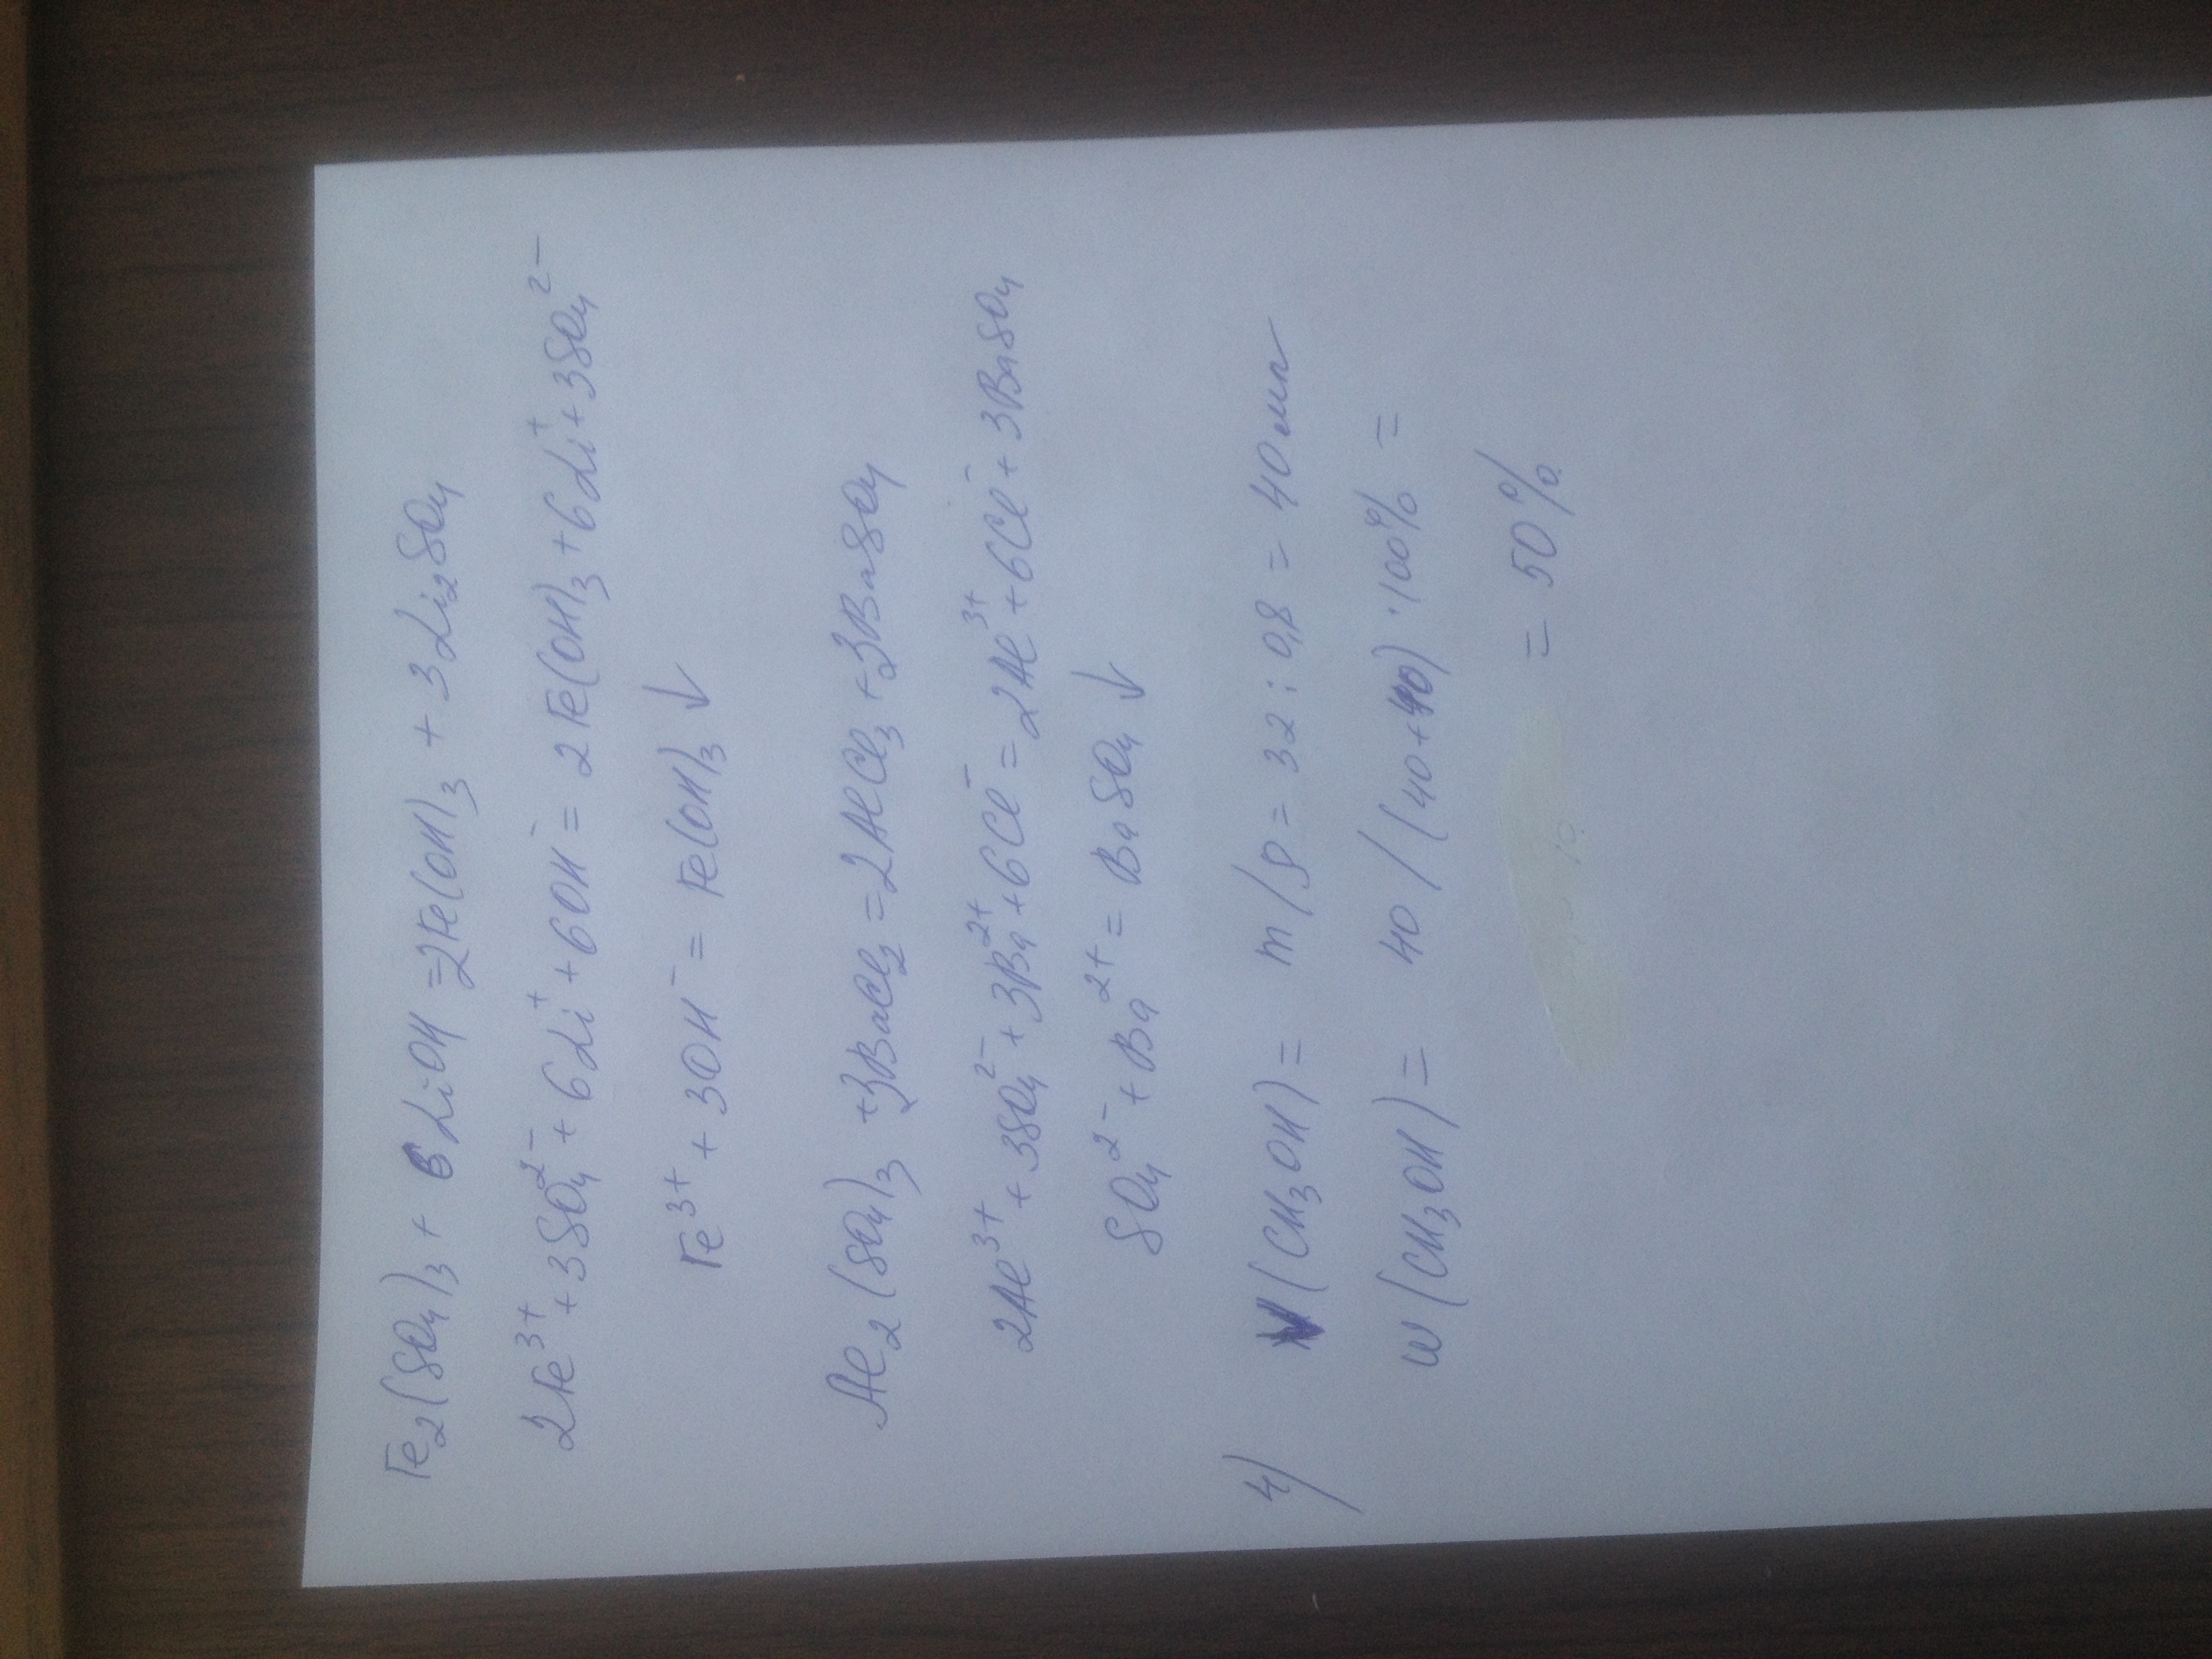 Fe₂(SO₄)₃ + 6LiOH = 2Fe(OH)₃ + 3Li₂SO₄
2Fe³⁺ + 3SO₄²⁻ + 6Li⁺ + 6OH⁻ = 2Fe(OH)₃ + 6Li⁺ + 3SO₄²⁻
Fe³⁺ + 3OH⁻ = Fe(OH)₃↓
Al₂(SO₄)₃ + 3BaCl₂ = 2AlCl₃ + 3BaSO₄
2Al³⁺ + 3SO₄²⁻ + 3Ba²⁺ + 6Cl⁻ = 2Al³⁺ + 6Cl⁻ + 3BaSO₄
SO₄²⁻ + Ba²⁺ = BaSO₄↓
4) V(CH₃OH) = m/ρ = 32 : 0,8 = 40 мл
w(CH₃OH) = 40/(40+40)·100% =
= 50%